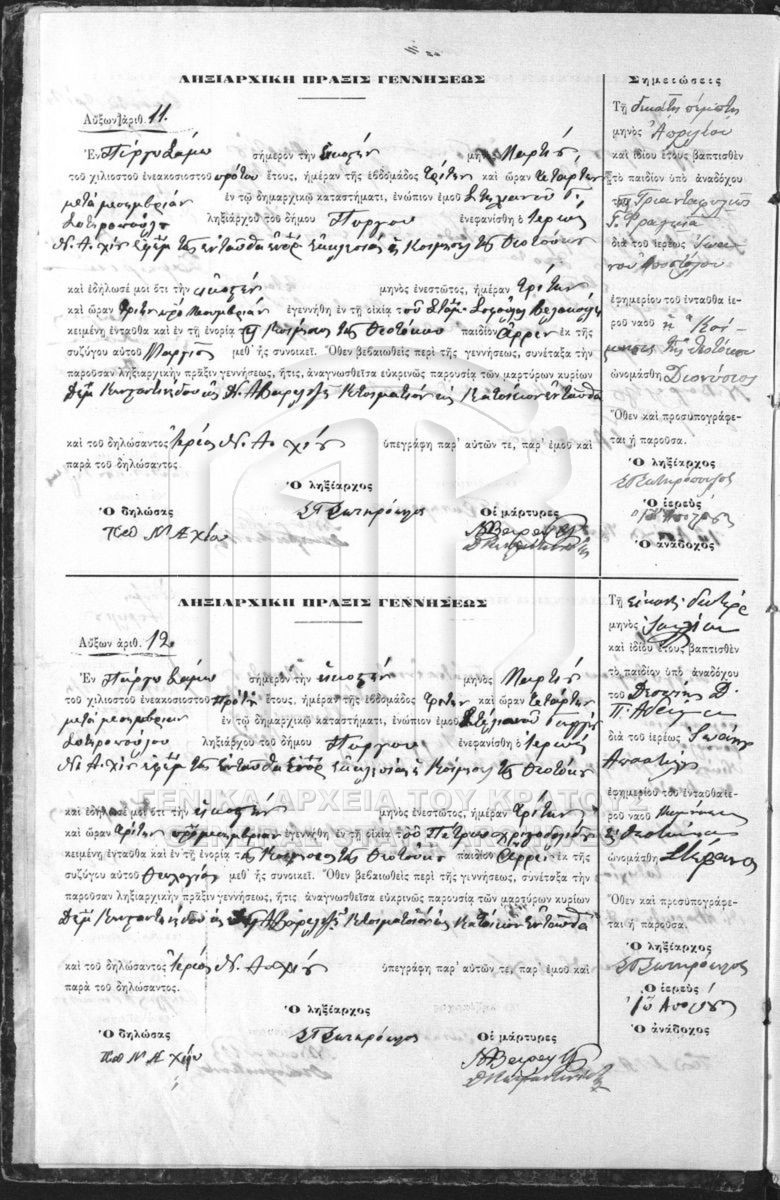 ΛΗΞΙΑΡΧΙΚΗ ΠΡΑΞΙΣ ΓΕΝΝΗΣΕΩΣ
Αὔξων ἀριθ. 11.
Ἐν Πύργῳ Σάμου σήμερον τὴν εἰκοστὴν μηνὸς Μαρτίου
τοῦ χιλιοστοῦ ἐνεακοσιοστοῦ πρώτου ἔτους, ἡμέραν τῆς ἑβδομάδος Τρίτην καὶ ὥραν τετάρτην
μετὰ μεσημβρίαν ἐν τῷ δημαρχικῷ καταστήματι, ἐνώπιον ἐμοῦ Στυλιανοῦ
Σωτηροπούλου ληξιάρχου τοῦ δήμου Πύργου ἐνεφανίσθη ὁ Ἱερεὺς
Ν. Α. Χίου ἐφημ τῆς ἐνταῦθα ἐκκλησίας ἡ Κοίμησις τῆς Θεοτόκου
καὶ ἐδήλωσέ μοι ὅτι τὴν εἰκοστὴν μηνὸς ἐνεστῶτος, ἡμέραν Τρίτην
καὶ ὥραν τρίτην πρὸ μεσημβρίαν ἐγεννήθη ἐν τῇ οἰκίᾳ τοῦ
κειμένῃ ἐνταῦθα καὶ ἐν τῇ ἐνορίᾳ τῆς Κοιμήσεως τῆς Θεοτόκου παιδίον ἄρρεν ἐκ τῆς
συζύγου αὐτοῦ μεθ' ἧς συνοικεῖ. Ὅθεν βεβαιωθεὶς περὶ τῆς γεννήσεως, συνέταξα τὴν
παροῦσαν ληξιαρχικὴν πρᾶξιν γεννήσεως, ἥτις, ἀναγνωσθεῖσα εὐκρινῶς παρουσίᾳ τῶν μαρτύρων κυρίων
Δημ Κωνσταντινίδου κατοίκων ἐνταῦθα
καὶ τοῦ δηλώσαντος Ἱερέως Ν. Α. Χίου ὑπεγράφη παρ' αὐτῶν τε, παρ' ἐμοῦ καὶ
παρὰ τοῦ δηλώσαντος
Ὁ ληξίαρχος
Ὁ δηλώσας ΣΓΣωτηρόπουλος Οἱ μάρτυρες
Ν Α Χίου
Σημειώσεις
Τῇ δεκάτῃ πέμπτῃ
μηνὸς Ἀπριλίου
καὶ ἰδίου ἔτους βαπτισθὲν
τὸ παιδίον ὑπὸ ἀναδόχου
διὰ τοῦ ἱερέως Ἰωάν
νου Ἀποστόλου
ἐφημερίου τοῦ ἐνταῦθα ἱε-
ροῦ ναοῦ ἡ Κοί-
μησις τῆς Θεοτόκου
ὠνομάσθη Διονύσιος
Ὅθεν καὶ προσϋπογράφε-
ται ἡ παροῦσα.
Ὁ ληξίαρχος
ΣΓΣωτηρόπουλος
Ὁ ἱερεὺς
Ὁ ἀνάδοχος
ΛΗΞΙΑΡΧΙΚΗ ΠΡΑΞΙΣ ΓΕΝΝΗΣΕΩΣ
Αὔξων ἀριθ. 12.
Ἐν Πύργῳ Σάμου σήμερον τὴν εἰκοστὴν μηνὸς Μαρτίου
τοῦ χιλιοστοῦ ἐνεακοσιοστοῦ πρώτου ἔτους, ἡμέραν τῆς ἑβδομάδος Τρίτην καὶ ὥραν τετάρτην
μετὰ μεσημβρίαν ἐν τῷ δημαρχικῷ καταστήματι, ἐνώπιον ἐμοῦ Στυλιανοῦ
Σωτηροπούλου ληξιάρχου τοῦ δήμου Πύργου ἐνεφανίσθη ὁ Ἱερεὺς
Ν. Α. Χίου ἐφημ τῆς ἐνταῦθα ἐκκλησίας ἡ Κοίμησις τῆς Θεοτόκου
ΓΕΝΙΚΑ ΑΡΧΕΙΑ ΤΟΥ ΚΡΑΤΟΥΣ
καὶ ἐδήλωσέ μοι ὅτι τὴν εἰκοστὴν μηνὸς ἐνεστῶτος, ἡμέραν Τρίτην
καὶ ὥραν τρίτην πρὸ μεσημβρίαν ἐγεννήθη ἐν τῇ οἰκίᾳ τοῦ Πέτρου
κειμένῃ ἐνταῦθα καὶ ἐν τῇ ἐνορίᾳ τῆς Κοιμήσεως τῆς Θεοτόκου παιδίον ἄρρεν ἐκ τῆς
συζύγου αὐτοῦ μεθ' ἧς συνοικεῖ. Ὅθεν βεβαιωθεὶς περὶ τῆς γεννήσεως, συνέταξα τὴν
παροῦσαν ληξιαρχικὴν πρᾶξιν γεννήσεως, ἥτις ἀναγνωσθεῖσα εὐκρινῶς παρουσίᾳ τῶν μαρτύρων κυρίων
Δημ Κωνσταντινίδου κατοίκων ἐνταῦθα
καὶ τοῦ δηλώσαντος Ἱερέως Ν. Α. Χίου ὑπεγράφη παρ' αὐτῶν τε, παρ' ἐμοῦ καὶ
παρὰ τοῦ δηλώσαντος.
Ὁ ληξίαρχος
Ὁ δηλώσας ΣΓΣωτηρόπουλος Οἱ μάρτυρες
Ν Α Χίου
Τῇ εἰκοστῇ δευτέρᾳ
μηνὸς
καὶ ἰδίου ἔτους βαπτισθὲν
τὸ παιδίον ὑπὸ ἀναδόχου
τοῦ
διὰ τοῦ ἱερέως Ἰωάννου
Ἀποστόλου
ἐφημερίου τοῦ ἐνταῦθα ἱε-
ροῦ ναοῦ Κοιμήσεως
Θεοτόκου
ὠνομάσθη Στέφανος
Ὅθεν καὶ προσϋπογράφε-
ται ἡ παροῦσα.
Ὁ ληξίαρχος
ΣΓΣωτηρόπουλος
Ὁ ἱερεὺς
Ὁ ἀνάδοχος